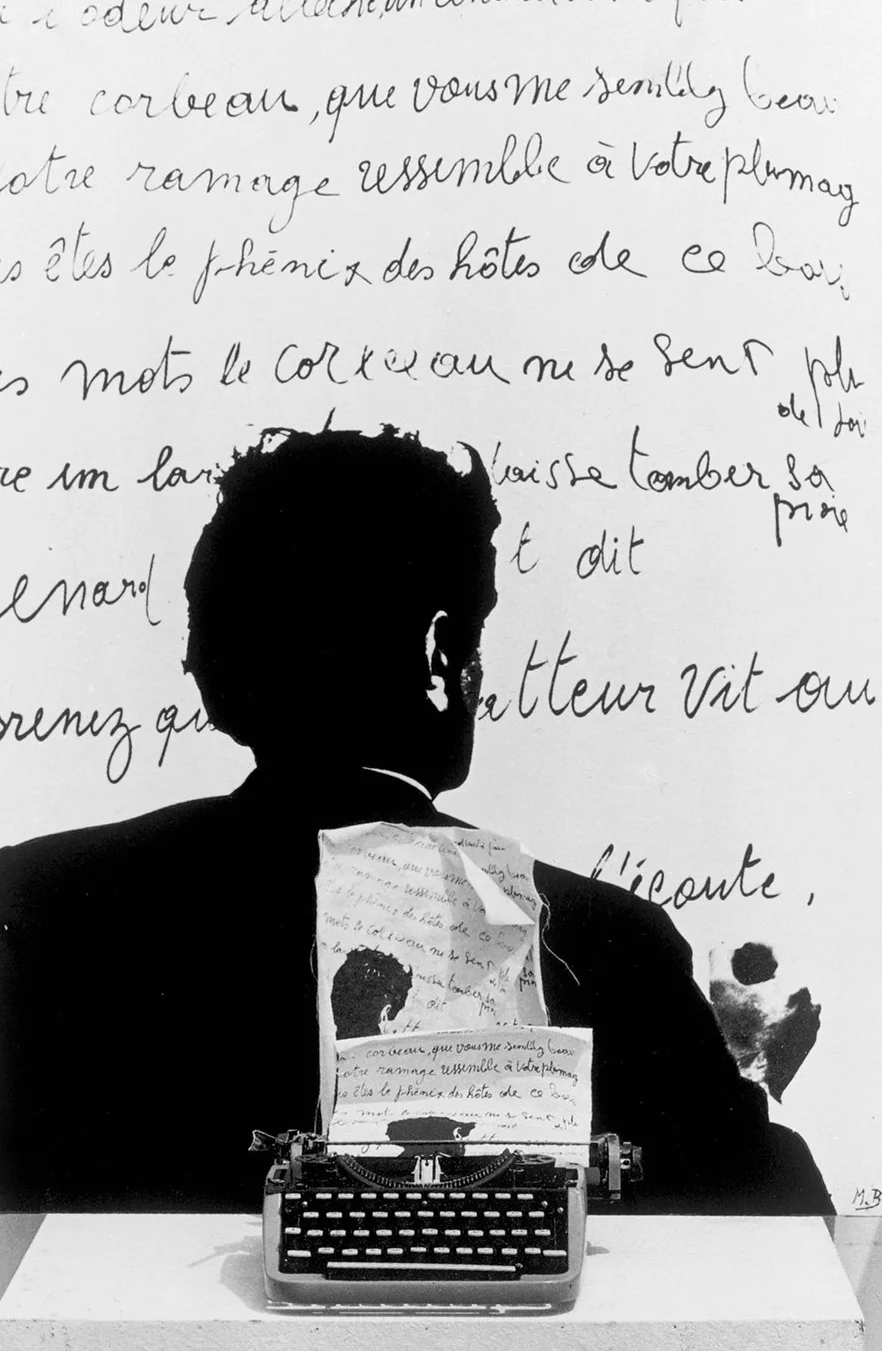 l'odeur
tre corbeau, que vous me semblez beau
otre ramage ressemble à votre plumag
s êtes le phénix des hôtes de ce bois
es mots le corbeau ne se sent plu
de soi
re un lar laisse tomber sa
proie
enard t dit
prenez qu atteur vit au
l'écoute,
M.B
corbeau, que vous me semblez beau
ramage ressemble à vo
le phénix des hôtes de ce
mots le corbeau ne se sent
tomber sa
dit
corbeau, que vous me semblez beau
otre ramage ressemble à votre plumag
s êtes le phénix des hôtes de ce bois
mots ne se sent